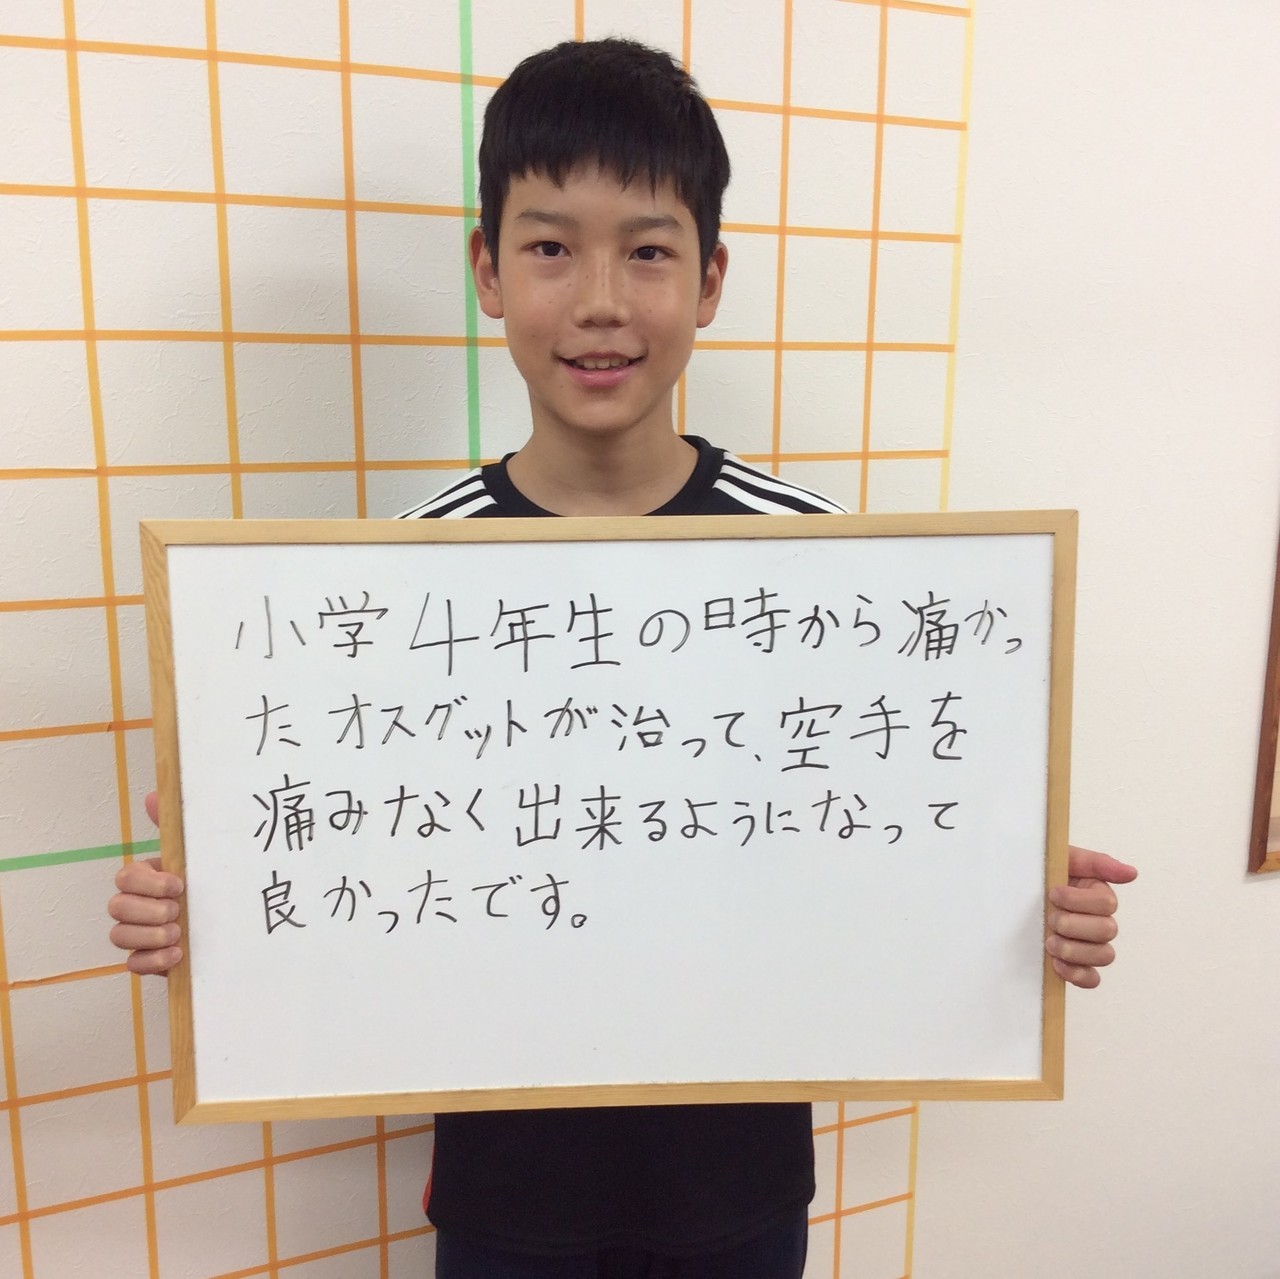 小学4年生の時から痛かっ
たオスグットが治って、空手を
痛みなく出来るようになって
良かったです。